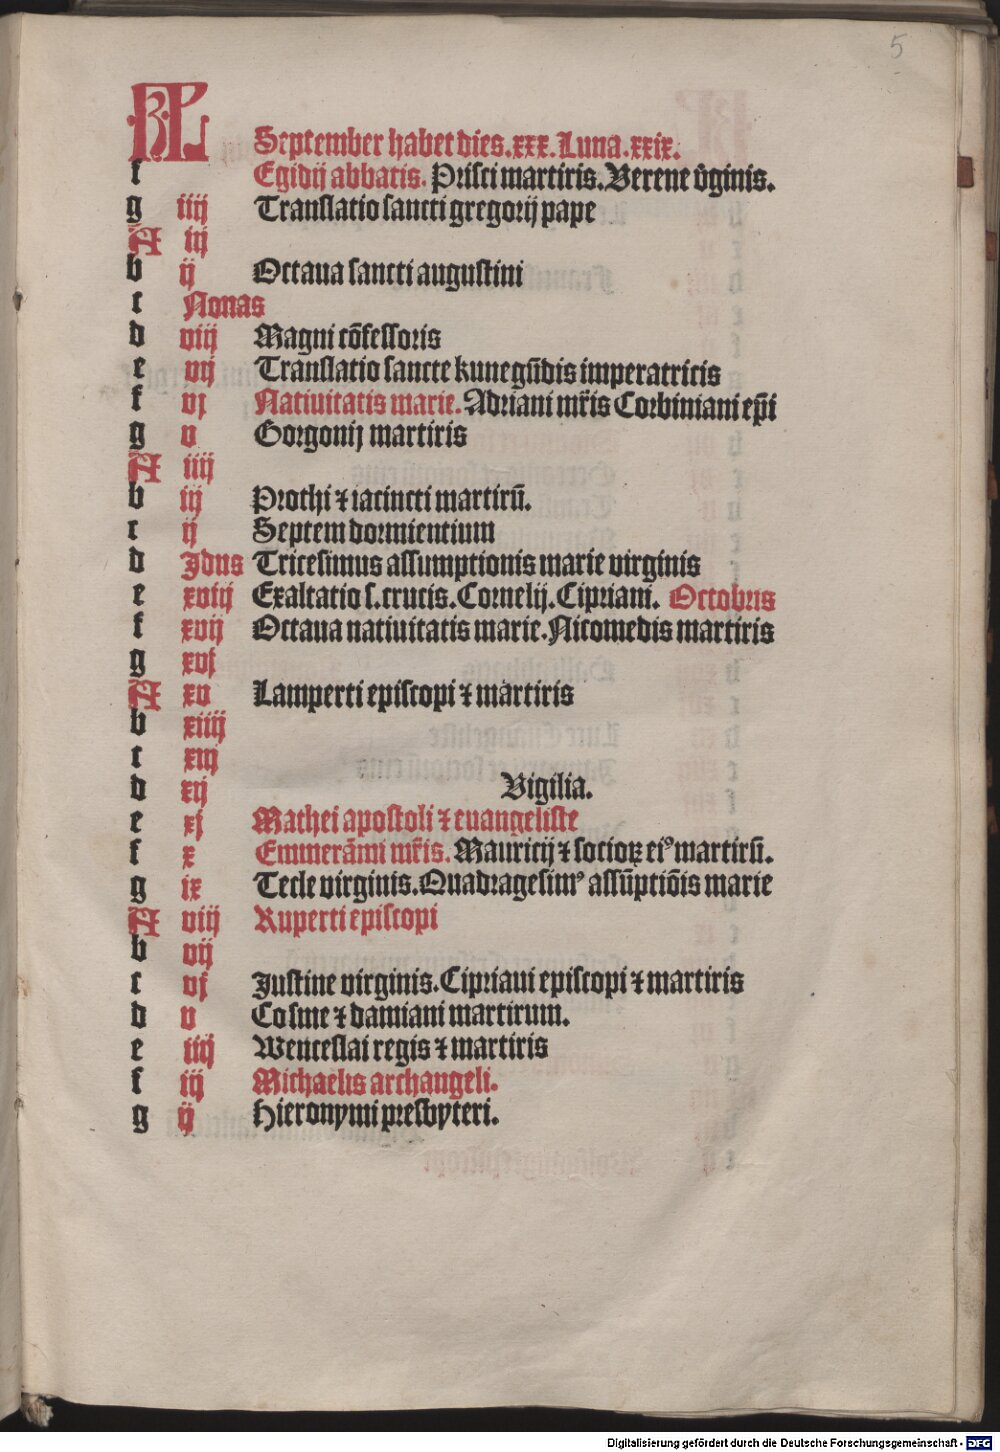 5
KL September habet dies.xxx.Luna.xxix.
f Egidij abbatis. Prisci martiris.Verene v̄ginis.
g iiij Translatio sancti gregorij pape
A iij
b ij Octaua sancti augustini
c Nonas
d viij Magni cōfessoris
e vij Translatio sancte kunegūdis imperatricis
f vj Natiuitatis marie. Adriani mr̄is Corbiniani ep̄i
g v Gorgonij martiris
A iiij
b iij Prothi ⁊ iacincti martirū.
c ij Septem dormientium
d Jdus Tricesimus assumptionis marie virginis
e xviij Exaltatio s.crucis.Cornelij.Cipriani. Octobris
f xvij Octaua natiuitatis marie.Nicomedis martiris
g xvj
A xv Lamperti episcopi ⁊ martiris
b xiiij
c xiij
d xij Vigilia.
e xj Mathei apostoli ⁊ euangeliste
f x Emmerāmi mr̄is. Mauricij ⁊ socioꝝ eiꝰ martirū.
g ix Tecle virginis.Quadragesimꝰ assūptiōis marie
A viij Ruperti episcopi
b vij
c vj Justine virginis.Cipriani episcopi ⁊ martiris
d v Cosme ⁊ damiani martirum.
e iiij Wenceslai regis ⁊ martiris
f iij Michaelis archangeli.
g ij Hieronymi presbyteri.
Digitalisierung gefördert durch die Deutsche Forschungsgemeinschaft - DFG